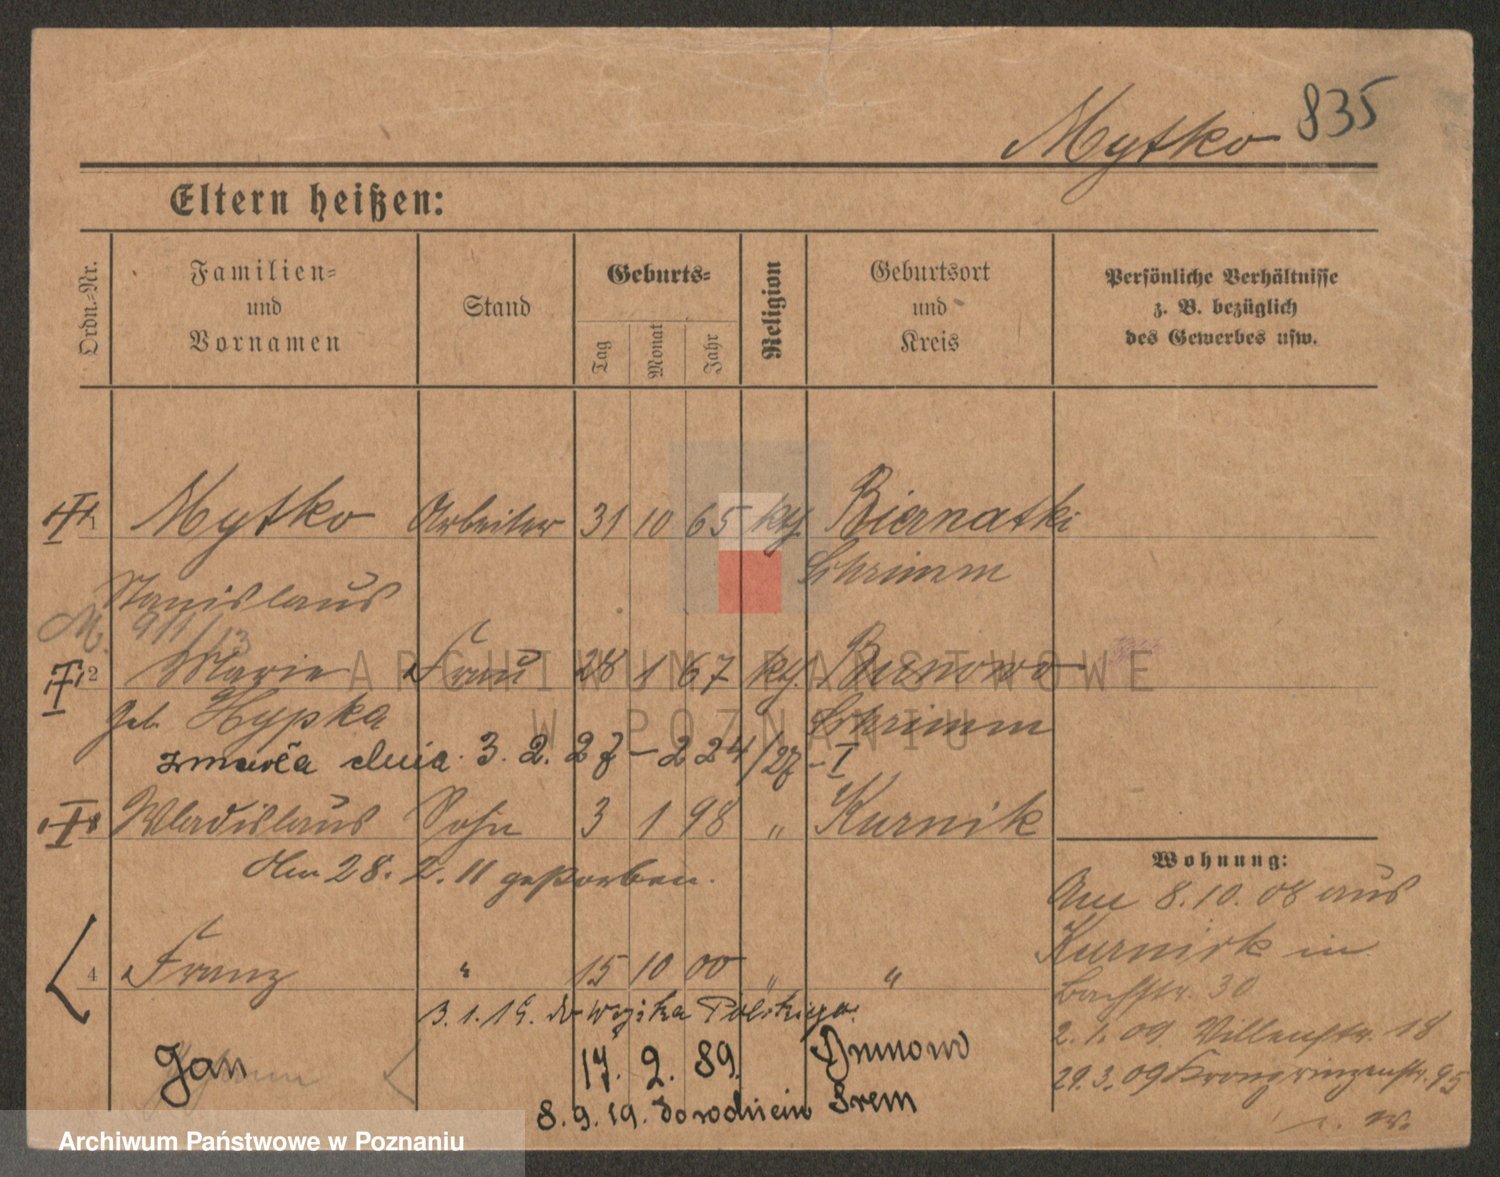 Mytko 835
Eltern heißen:
Ordn.-Nr.
Familien-
und
Vornamen
Stand
Geburts-
Tag
Monat
Jahr
Religion
Geburtsort
und
Kreis
Persönliche Verhältnisse
z. B. bezüglich
des Gewerbes usw.
1 Mytko Arbeiter 31 10 65 kth. Biernatki
Stanislaus Schrimm
M. 911/13
2 Marie Frau 28 1 67 kth.
geb. Hypka Schrimm
zmarła dnia 3. 2. 27 - 224/27 - I
Wladislaus Sohn 3 1 98 " Kurnik
Am 28. 2. 11 gestorben.
4 Franz " 15 10 00 " "
3. 1. 19. do wojska Polskiego.
Jan 17. 2. 89. Srem
8. 9. 19. do rodzicow
Wohnung:
Am 8. 10. 08 aus
Kurnik in
Bachstr. 30
2. 1. 09 Villenstr. 18
29. 3. 09 Kronprinzenstr. 95
ARCHIWUM PAŃSTWOWE
W POZNANIU
Archiwum Państwowe w Poznaniu